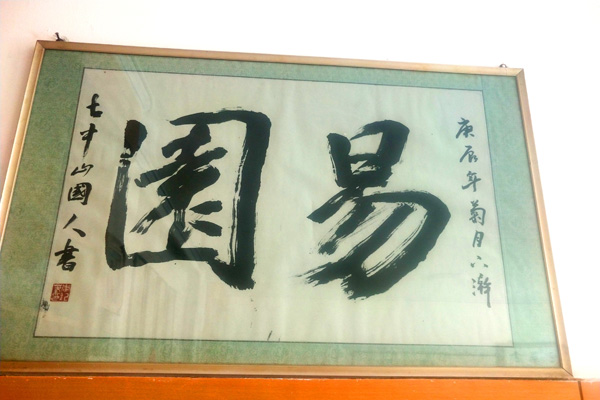 庚辰年菊月下澣
易園
中山國人書